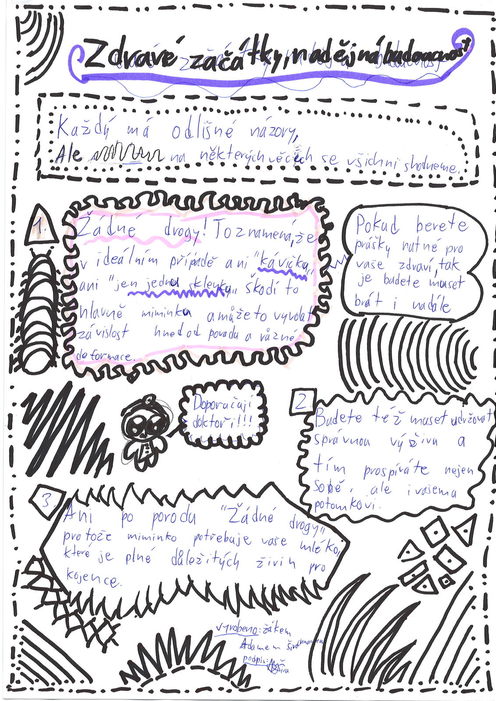 Zdravé začátky, nadějná budoucnost
Každý má odlišné názory,
Ale na některých věcích se všichni shodneme.
1.
Žádné drogy! To znamená, že
v ideálním případě ani "kávička"
ani "jen jednu sklenku", škodí to
hlavně miminku a může to vyvolat
závislost hned od porodu a různé
deformace.
Pokud berete
prášky nutné pro
vaše zdraví, tak
je budete muset
brát i nadále
Doporučují
doktoři!!!
2
Budete též muset udržovat
správnou výživu a
tím prospíváte nejen
sobě, ale i vašemu
potomkovi.
3.
Ani po porodu "Žádné drogy",
protože miminko potřebuje vaše mléko,
které je plné důležitých živin pro
kojence.
vyrobeno: žákem
Adamem
podpis: